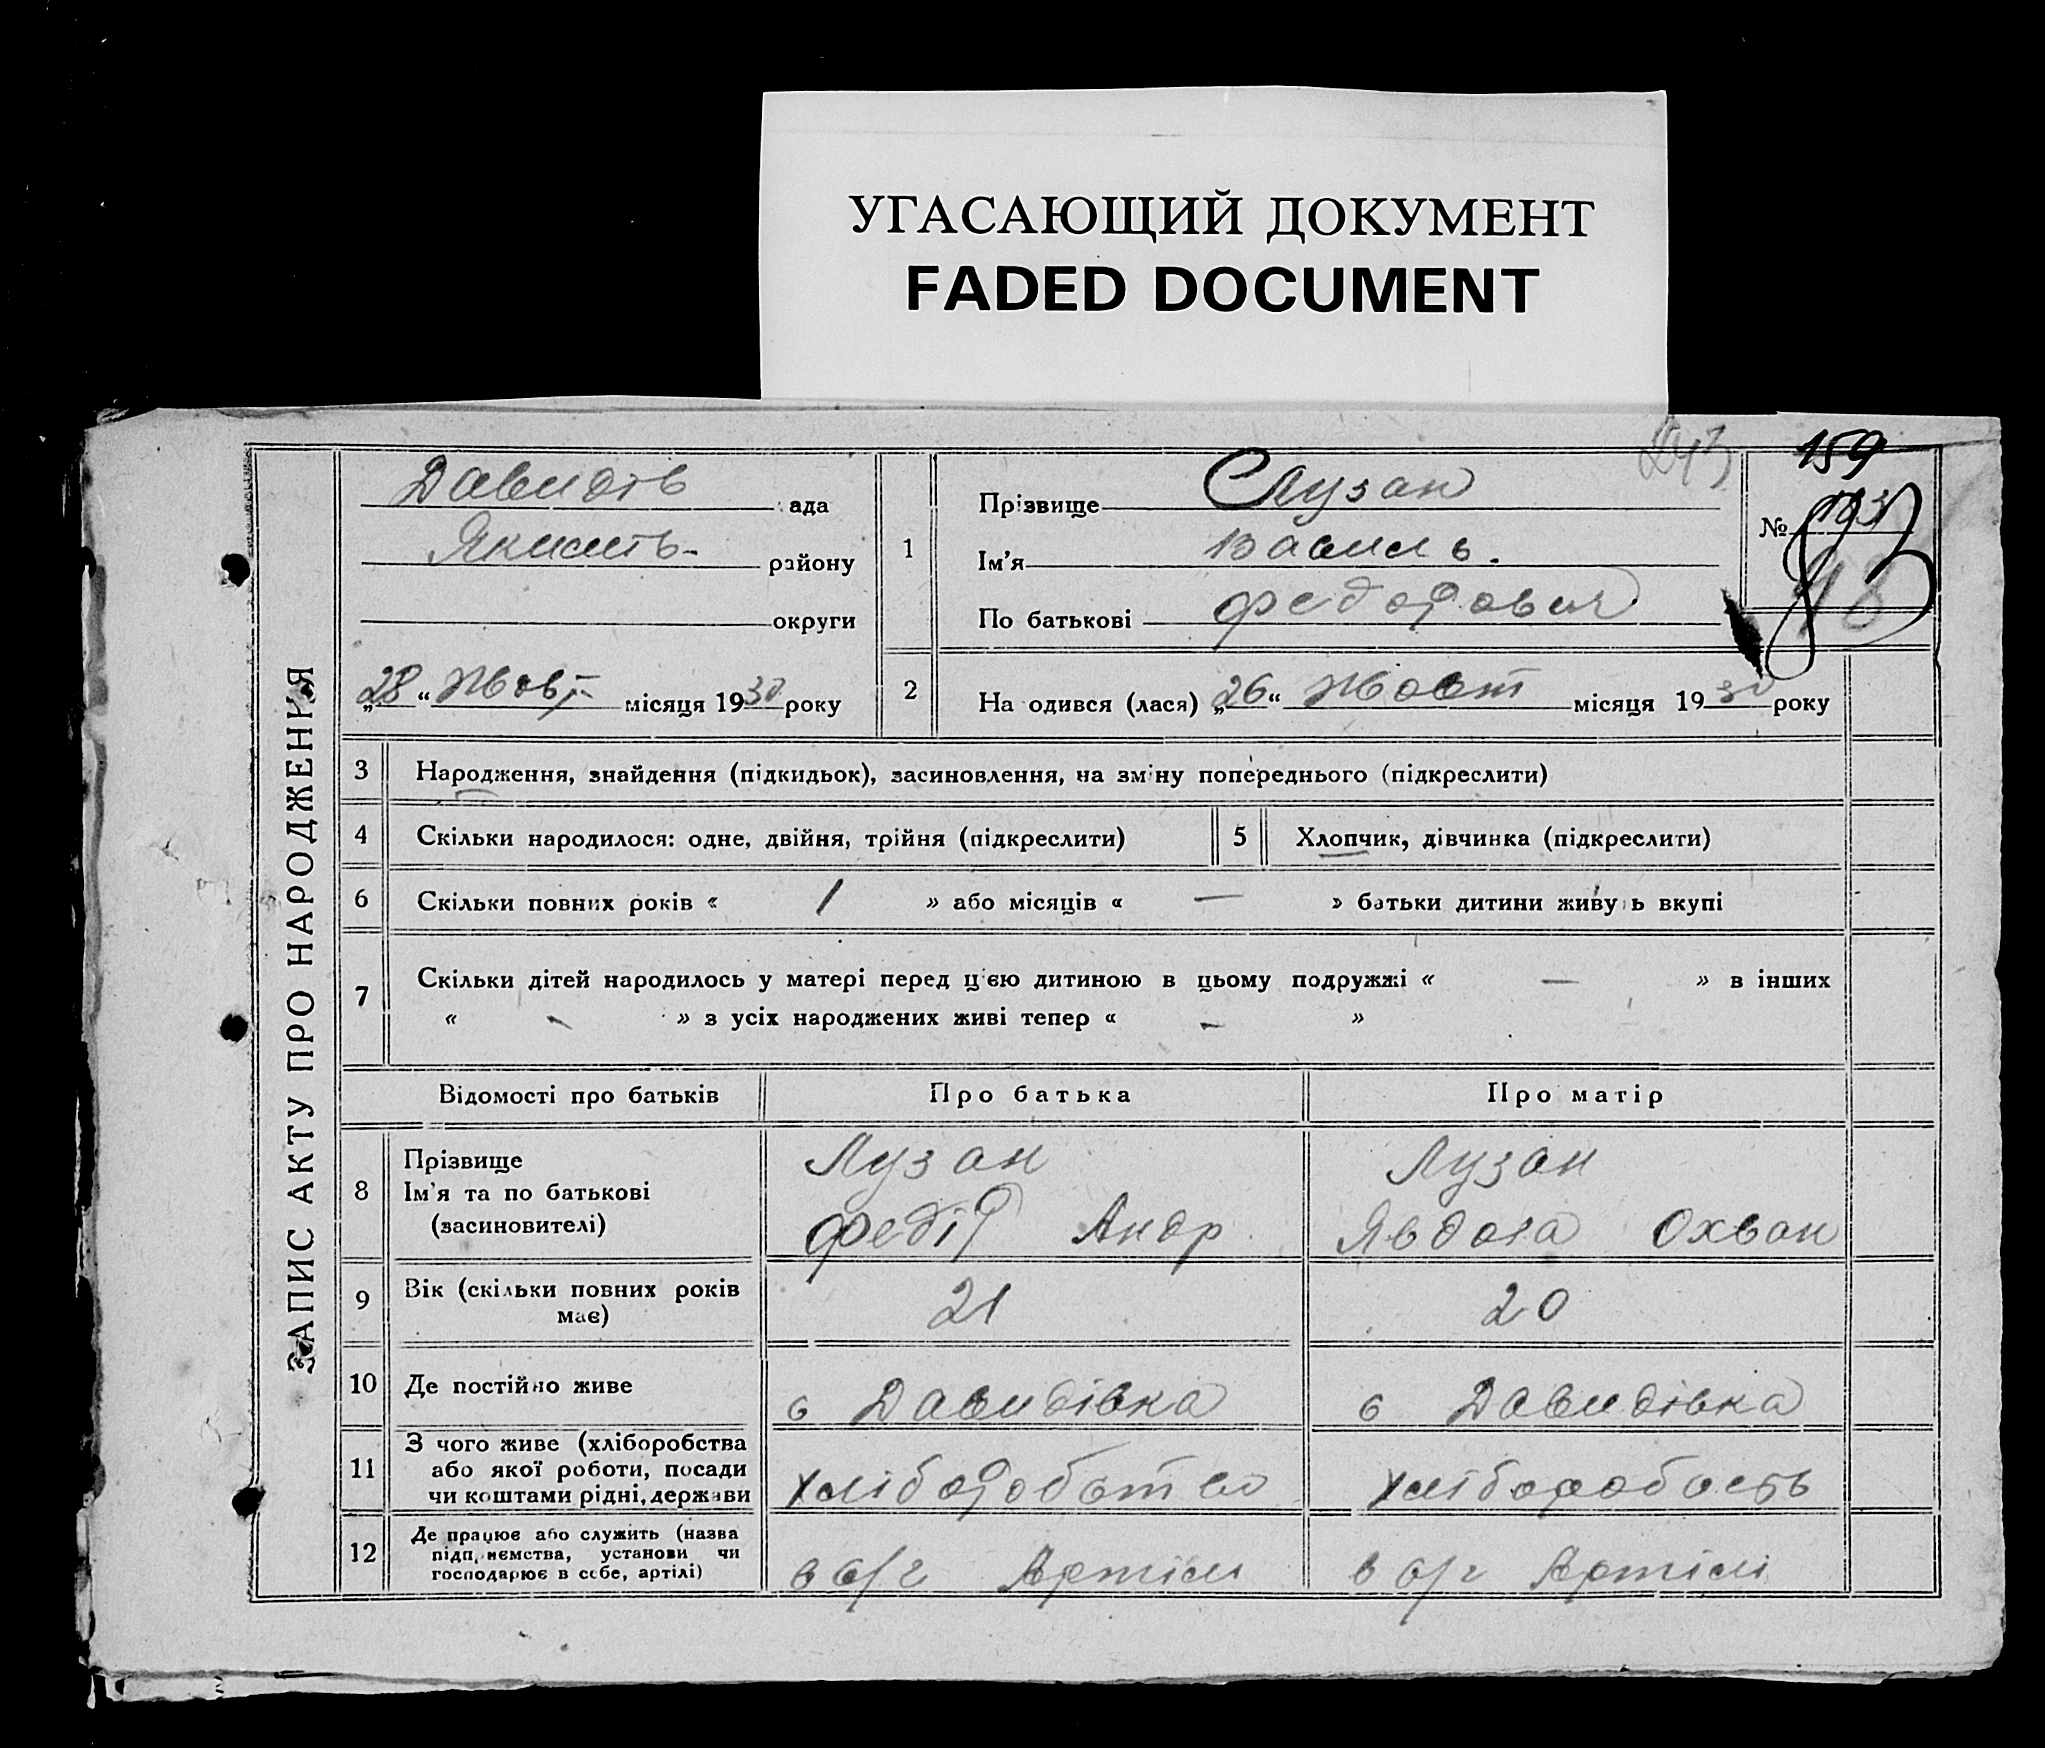 УГАСАЮЩИЙ ДОКУМЕНТ
FADED DOCUMENT
ЗАПИС АКТУ ПРО НАРОДЖЕННЯ
Давидів ада
району
округи
„28“ Жовт місяця 1930 року
1
Прізвище Лузан
Ім’я Василь.
По батькові Федорович
159
№
2 На одився (лася) „26“ Жовт місяця 1930 року
3 Народження, знайдення (підкидьок), засиновлення, на зміну попереднього (підкреслити)
4 Скільки народилося: одне, двійня, трійня (підкреслити) 5 Хлопчик, дівчинка (підкреслити)
6 Скільки повних років « 1 » або місяців « — » батьки дитини живуть вкупі
7 Скільки дітей народилось у матері перед цією дитиною в цьому подружжі « — » в інших
« - » з усіх народжених живі тепер « - »
Відомості про батьків Про батька Про матір
8 Прізвище Лузан Лузан
Ім’я та по батькові
(засиновителі) Федір Андр Явдоха Охван
9 Вік (скільки повних років
має) 21 20
10 Де постійно живе с Давидівка с Давидівка
11 З чого живе (хліборобства
або якої роботи, посади
чи коштами рідні, держави хліборобство хліборобость
12 Де працює або служить (назва
підприємства, установи чи
господарює в себе, артілі) в с/г Артілі в с/г Артілі